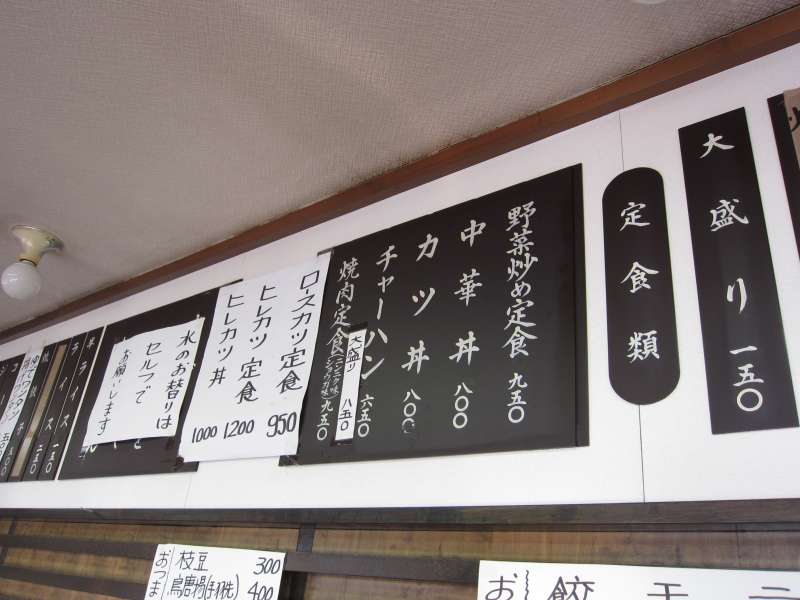 大盛り 一五〇
定食類
野菜炒め定食 九五〇
中華丼 八〇〇
カツ丼 八〇〇
チャーハン 六五〇
大盛り 八五〇
焼肉定食 九五〇
ロースカツ定食 950
ヒレカツ定食 1200
ヒレカツ丼 1000
水のお替りは
セルフで
お願いします
ライス
半ライス 一五〇
おつま
枝豆 300
鳥唐揚(手羽先) 400
お
餃